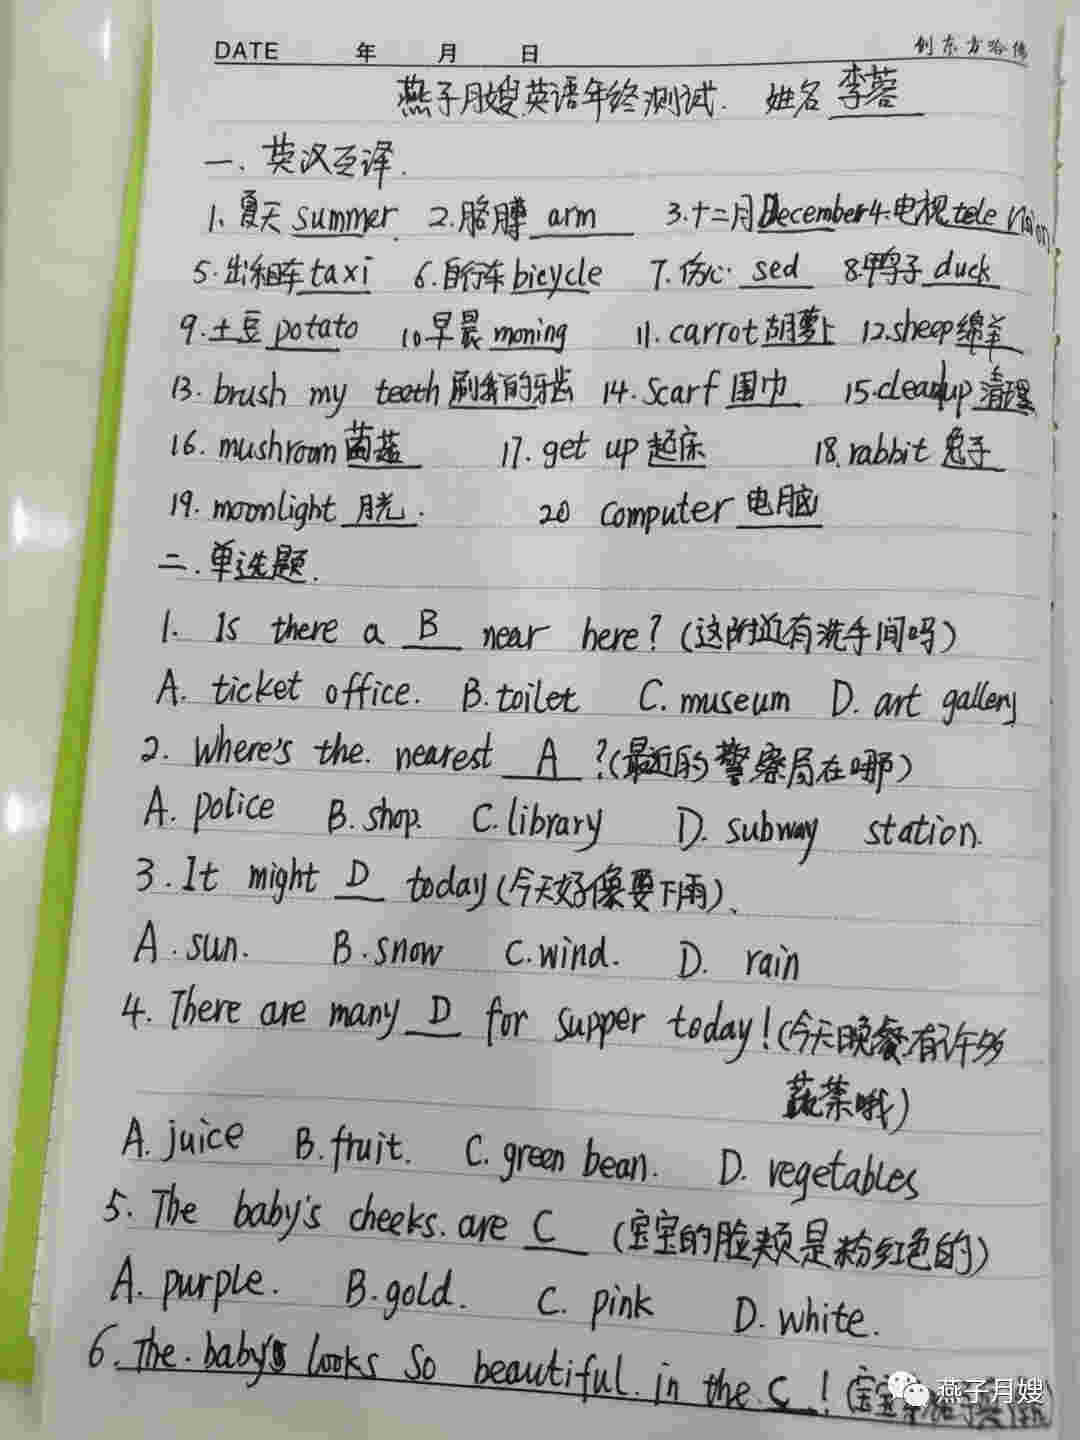 DATE 年 月 日 创东方哈佛
燕子月嫂英语年终测试. 姓名 李蓉
一. 英汉互译.
1. 夏天 summer 2. 胳膊 arm 3. 十二月 December 4. 电视 television
5. 出租车 taxi 6. 自行车 bicycle 7. 伤心 sed 8. 鸭子 duck
9. 土豆 potato 10 早晨 moning 11. carrot 胡萝卜 12. sheep 绵羊
13. brush my teeth 刷我的牙齿 14. scarf 围巾 15. clean up 清理
16. mushroom 蘑菇 17. get up 起床 18. rabbit 兔子
19. moonlight 月光. 20 computer 电脑
二. 单选题.
1. Is there a B near here? (这附近有洗手间吗)
A. ticket office. B. toilet C. museum D. art gallery
2. Where's the. nearest A ? (最近的警察局在哪)
A. police B. shop. C. library D. subway station.
3. It might D today (今天好像要下雨).
A. sun. B. snow C. wind. D. rain
4. There are many D for supper today! (今天晚餐有许多
蔬菜哦)
A. juice B. fruit. C. green bean. D. vegetables
5. The baby's cheeks. are C (宝宝的脸颊是粉红色的)
A. purple. B. gold. C. pink D. white.
6. The. baby's looks so beautiful. in the C ! (宝宝
燕子月嫂